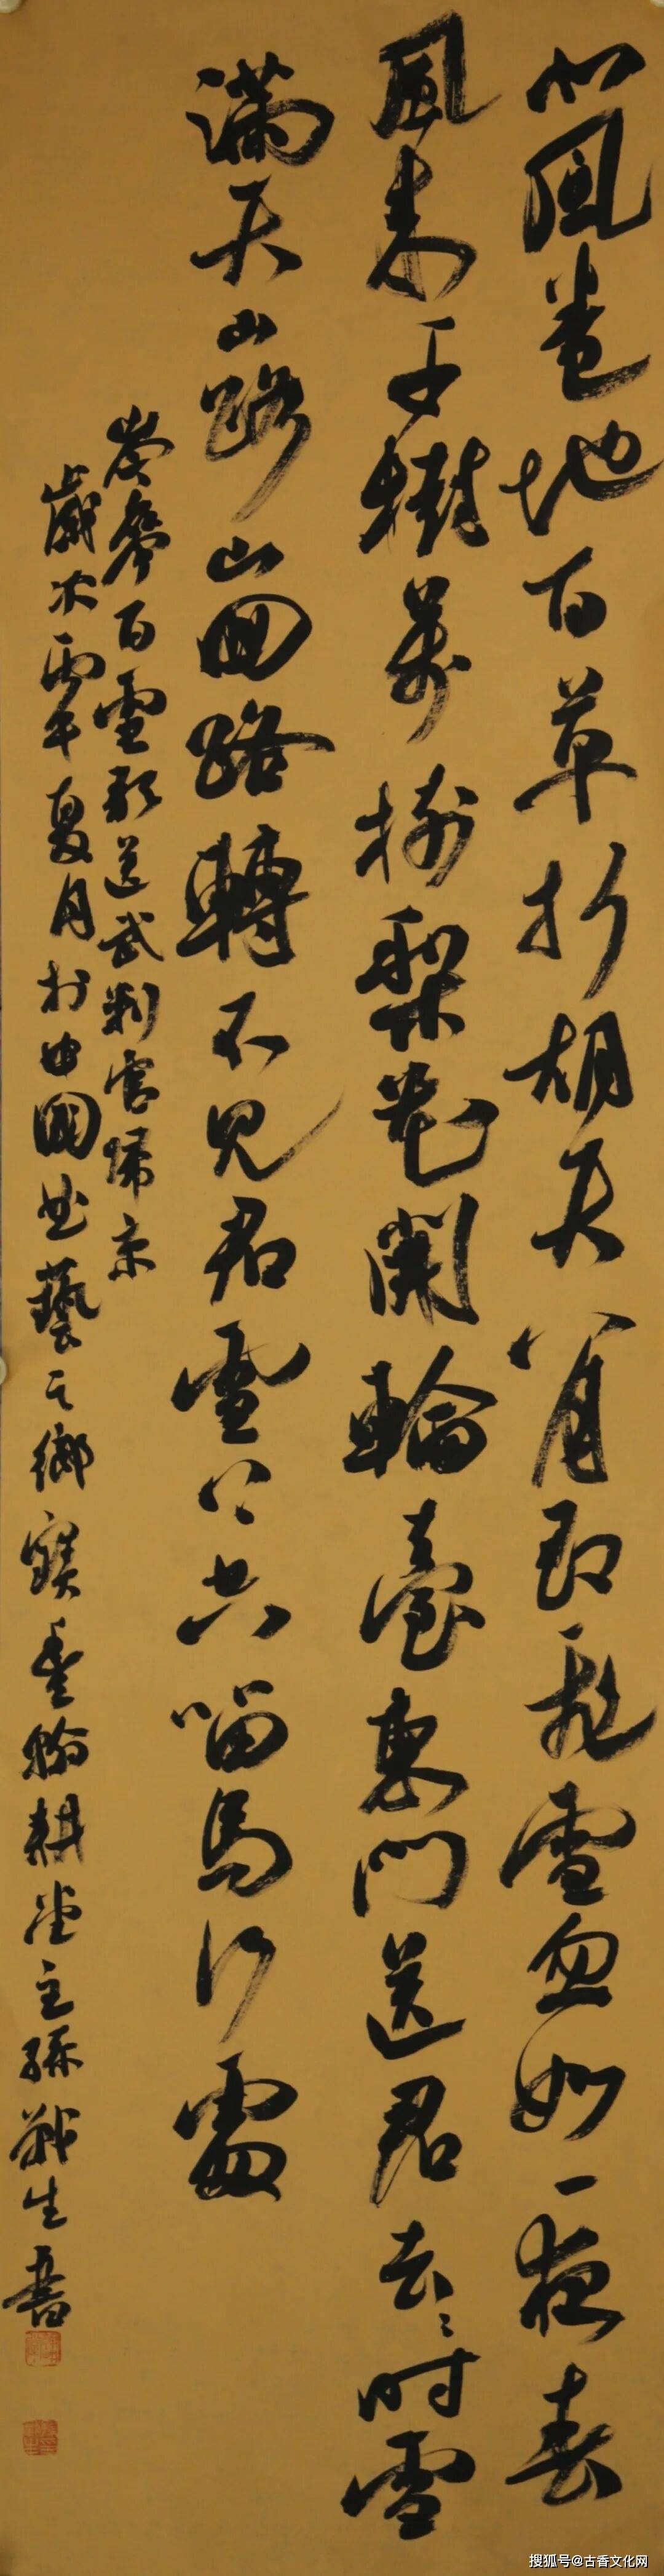 北風卷地百草折胡天八月即飛雪忽如一夜春
風來千樹萬樹梨花開輪臺東門送君去〻時雪
滿天山路山回路轉不見君雪上空留馬行處
岑參白雪歌送武判官歸京
歲次丙午夏月於中國曲藝之鄉寶豐翰耕堂主孫戰生書
搜狐号@古香文化网